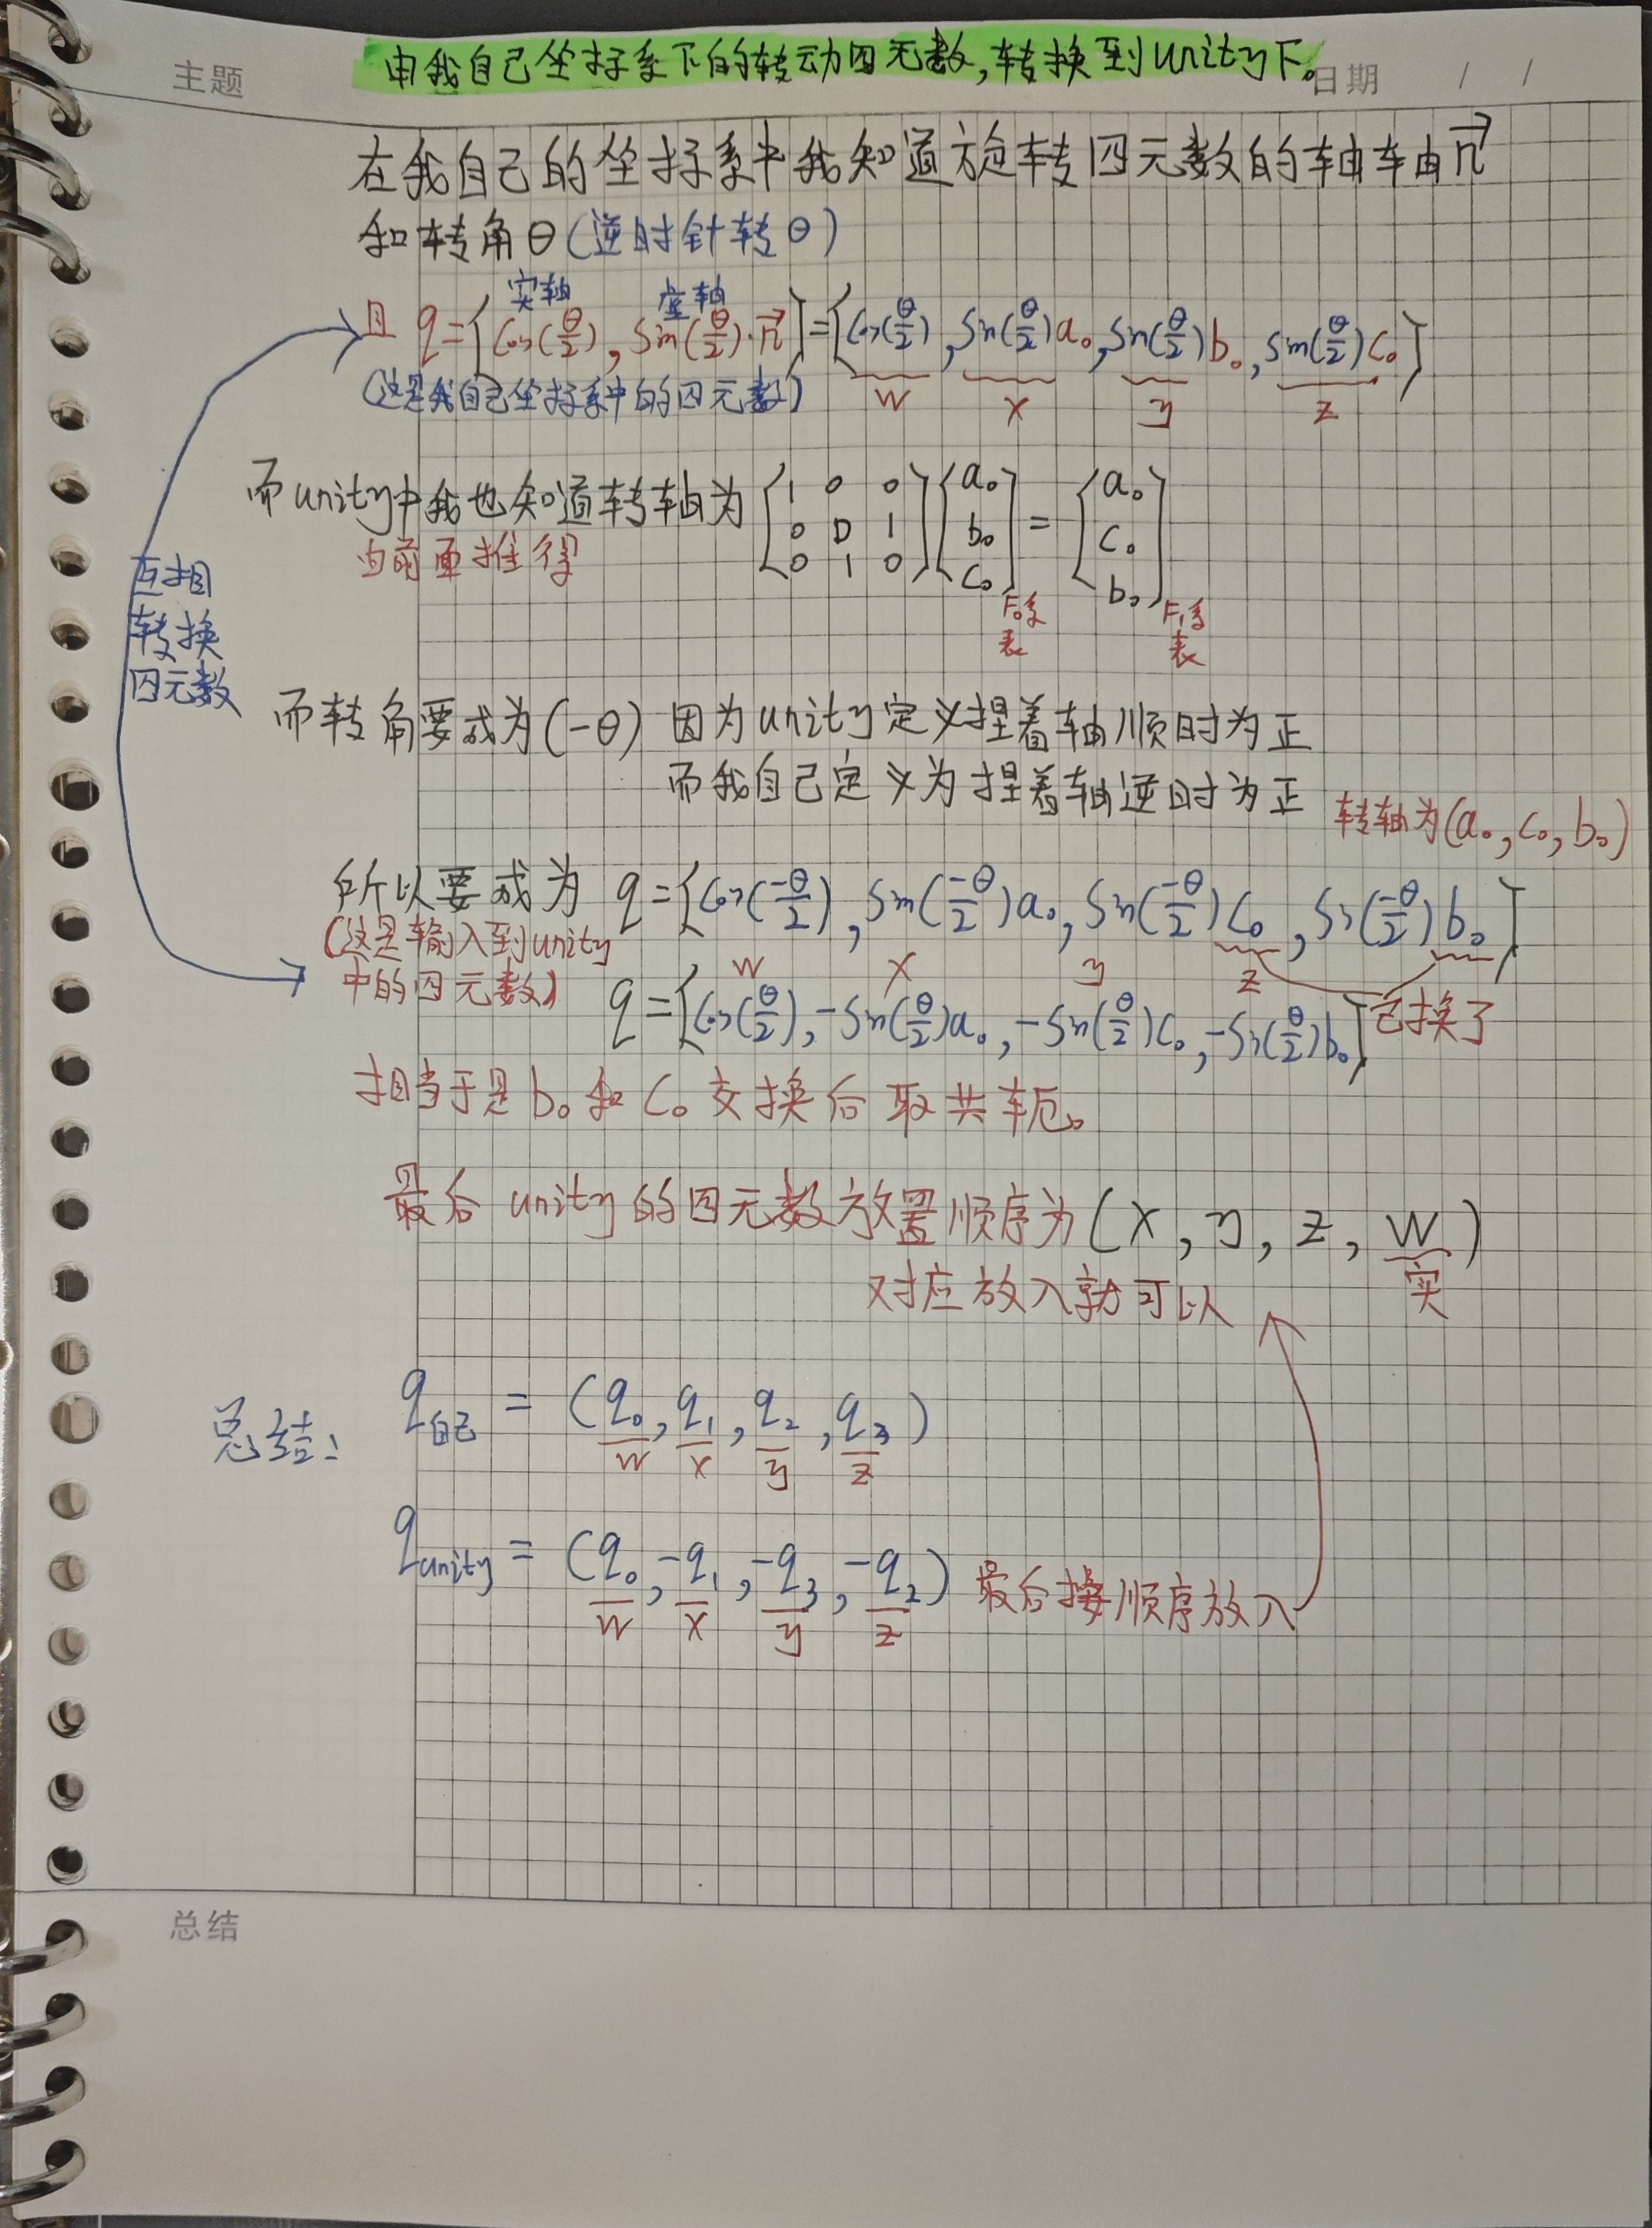 主题
由我自己坐标系下的转动四元数,转换到unity下。
日期 / /
在我自己的坐标系中我知道旋转四元数的轴转由n⃗
和转角θ(逆时针转θ)
实轴 虚轴
且 q=[cos(θ/2), sin(θ/2)·n⃗]=[cos(θ/2), sin(θ/2)a₀, sin(θ/2)b₀, sin(θ/2)c₀]
(这是我自己坐标系中的四元数) w x y z
而unity中我也知道转轴为 [1 0 0; 0 0 1; 0 1 0][a₀; b₀; c₀] = [a₀; c₀; b₀]
由前面推得
F₀系表 F₁系表
互相
转换
四元数
而转角要成为(-θ) 因为unity定义捏着轴顺时为正
而我自己定义为捏着轴逆时为正
转轴为(a₀, c₀, b₀)
所以要成为 q=[cos(-θ/2), sin(-θ/2)a₀, sin(-θ/2)c₀, sin(-θ/2)b₀]
(这是输入到unity
中的四元数)
w x y z
已换了
q=[cos(θ/2), -sin(θ/2)a₀, -sin(θ/2)c₀, -sin(θ/2)b₀]
相当于是b₀和c₀交换后取共轭。
最后unity的四元数放置顺序为(x, y, z, w)
实
对应放入就可以
总结: q自己 = (q₀, q₁, q₂, q₃)
w x y z
qunity = (q₀, -q₁, -q₃, -q₂) 最后按顺序放入
w x y z
总结